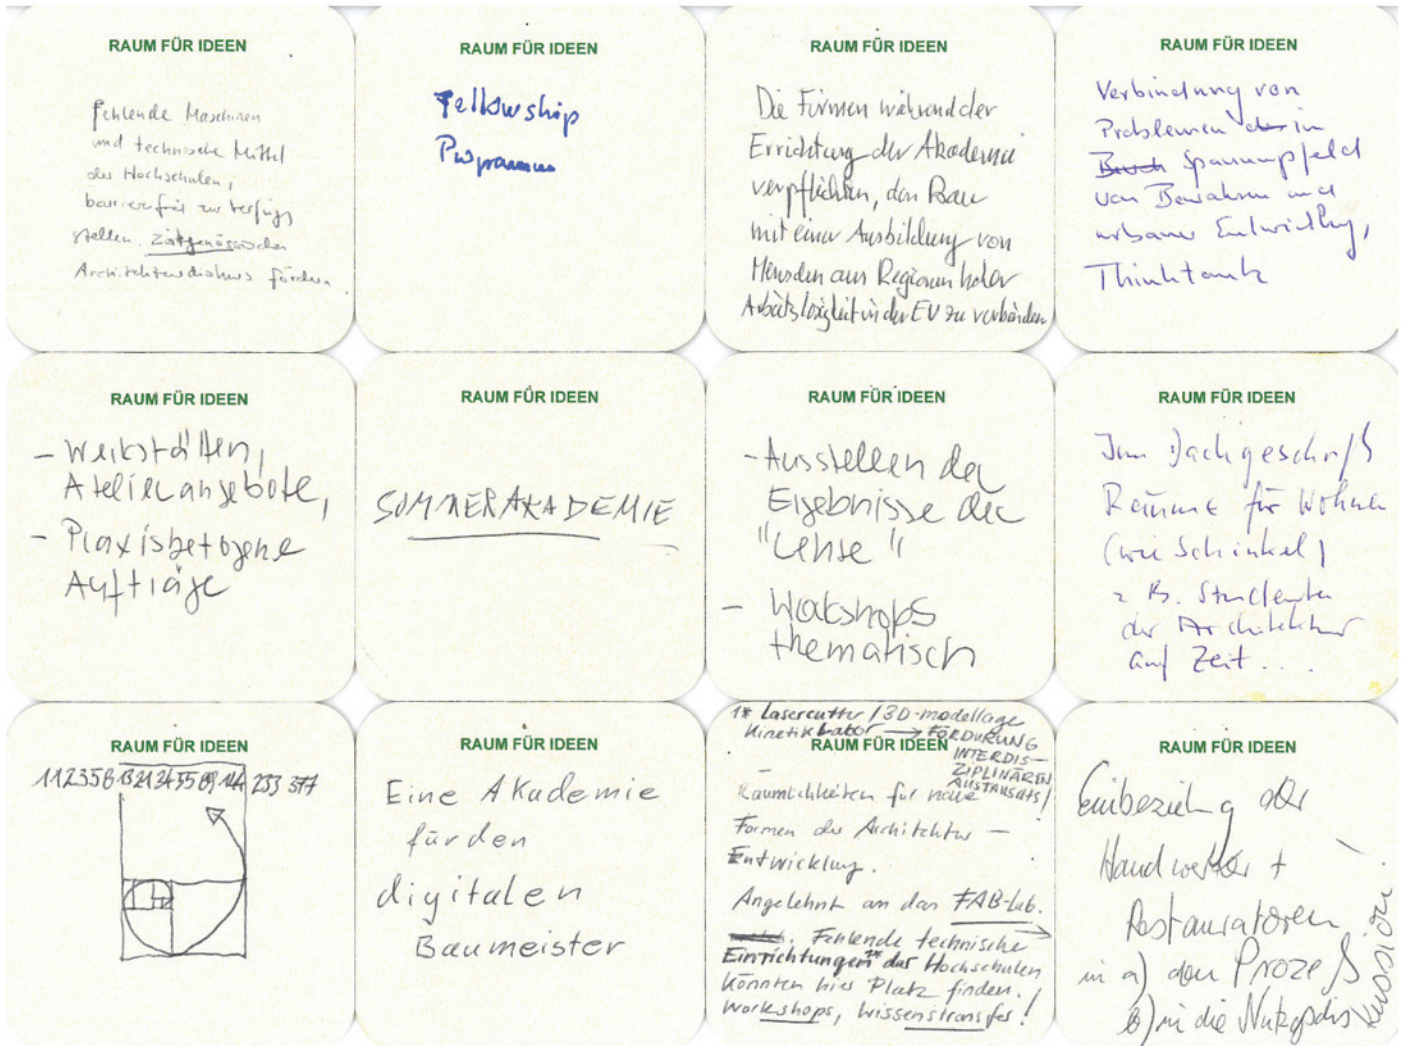 RAUM FÜR IDEEN
fehlende Maschinen
und technische Mittel
der Hochschulen,
barrierefrei zur Verfügg
stellen. Zeitgenössischen
Architekturdiskurs fördern.
RAUM FÜR IDEEN
Fellowship
Programm
RAUM FÜR IDEEN
Die Firmen während der
Errichtung der Akademie
verpflichten, den Bau
mit einer Ausbildung von
Menschen aus Regionen hoher
Arbeitslosigkeit in der EU zu verbinden
RAUM FÜR IDEEN
Verbindung von
Problemen in
Spannungsfeld
von Bewahren und
urbaner Entwicklung,
Thinktank
RAUM FÜR IDEEN
- Werkstätten,
Atelierangebote,
- Praxisbezogene
Aufträge
RAUM FÜR IDEEN
SOMMERAKADEMIE
RAUM FÜR IDEEN
- Ausstellen der
Ergebnisse der
"Lehre"
- Workshops
thematisch
RAUM FÜR IDEEN
Im Dachgeschoß
Räume für Wohnen
(wie Schinkel)
z B. Studenten
der Architektur
auf Zeit...
RAUM FÜR IDEEN
1 1 2 3 5 8 13 21 34 55 89 144 233 377
RAUM FÜR IDEEN
Eine Akademie
für den
digitalen
Baumeister
1* Lasercutter / 3D-modellage
Kinetik Labor → FÖRDERUNG
RAUM FÜR IDEEN
INTERDIS-
ZIPLINÄREN
AUSTAUSCHS!
Räumlichkeiten für neue
Formen der Architektur -
Entwicklung.
Angelehnt an das FAB-Lab.
Fehlende technische
Einrichtungen 1* der Hochschulen
könnten hier Platz finden.
Workshops, Wissenstransfer!
RAUM FÜR IDEEN
Einbeziehung der
Handwerker +
Restauratoren
in a) den Prozeß
b) in die Nutzgsdis
kussion!